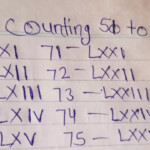 counting 50 to
XI 71 – LXXI
XII 72 – LXXII
XIII 73 – LXXIII
XIV 74 – LXXIV
XV 75 – LXXV